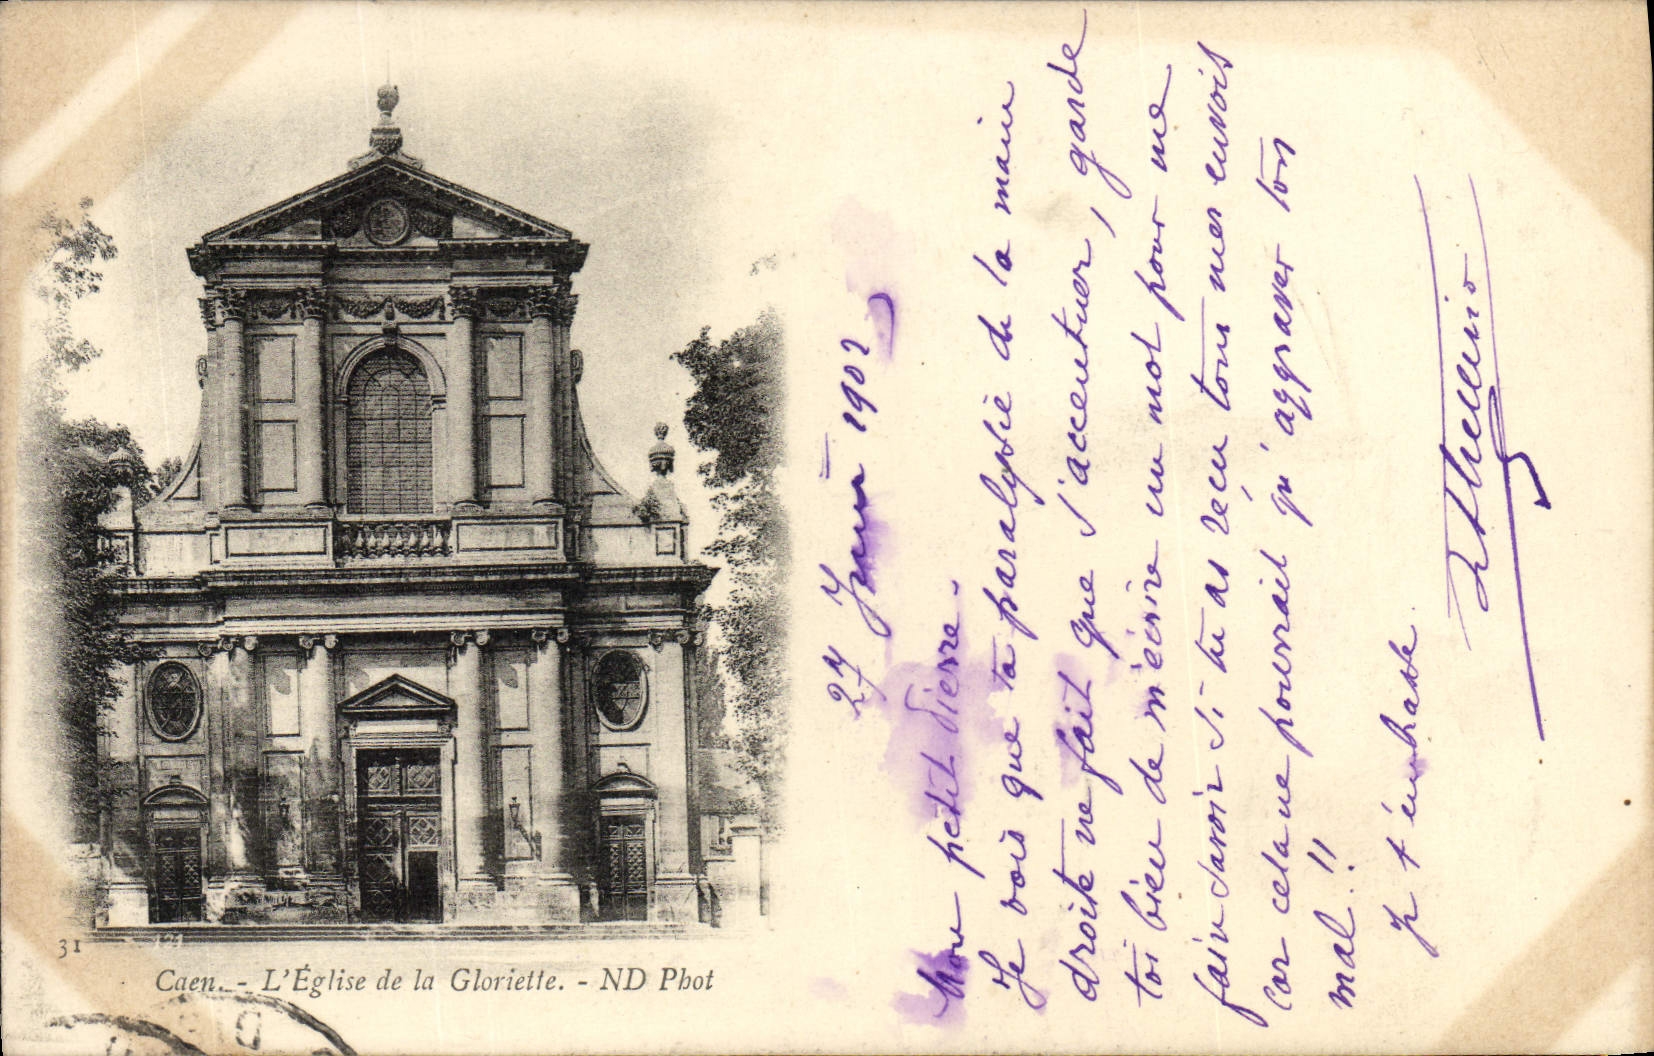 31
Caen. - L'Église de la Gloriette. - ND Phot
27 1902
Mon petit Pierre.
Je vois que ta paralysie de la main
droite ne fait que s'accentuer, garde
toi bien de m'écrire un mot pour me
faire savoir si tu as récu tous mes envois
car cela ne pourrait qu'aggraver ton
mal!!
Je t'embrasse.